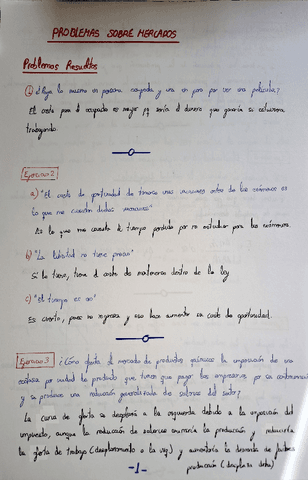 PROBLEMAS SOBRE MERCADOS
Problemas Resueltos
① ¿Paga lo mismo una persona ocupada y una en paro por ver una película?
El coste para el ocupado es mayor pq sería el dinero que ganaría si estuviera
trabajando.
Ejercicio 2
a) "El coste de oportunidad de tomarse unas vacaciones antes de los exámenes es
lo que me cuestan dichas vacaciones"
Es lo que me cuesta el tiempo perdido por no estudiar para los exámenes.
b) "La libertad no tiene precio"
Si lo tiene, tiene el coste de mantenerse dentro de la ley
c) "El tiempo es oro"
Es cierto, pues no regresa y eso hace aumentar su coste de oportunidad.
Ejercicio 3 ¿Cómo afecta al mercado de productos químicos la imposición de una
por unidad de producto que tienen que pagar las empresas por su contaminación
y se produce una reducción generalizada de salarios del sector?
La curva de oferta se desplaza a la izquierda debido a la imposición del
impuesto, aunque la reducción de salarios aumenta la producción y reduciría
la oferta de trabajo (desplazamiento a la izq) y aumentaría la demanda de factores
producción (desplaza dcha)
-1-